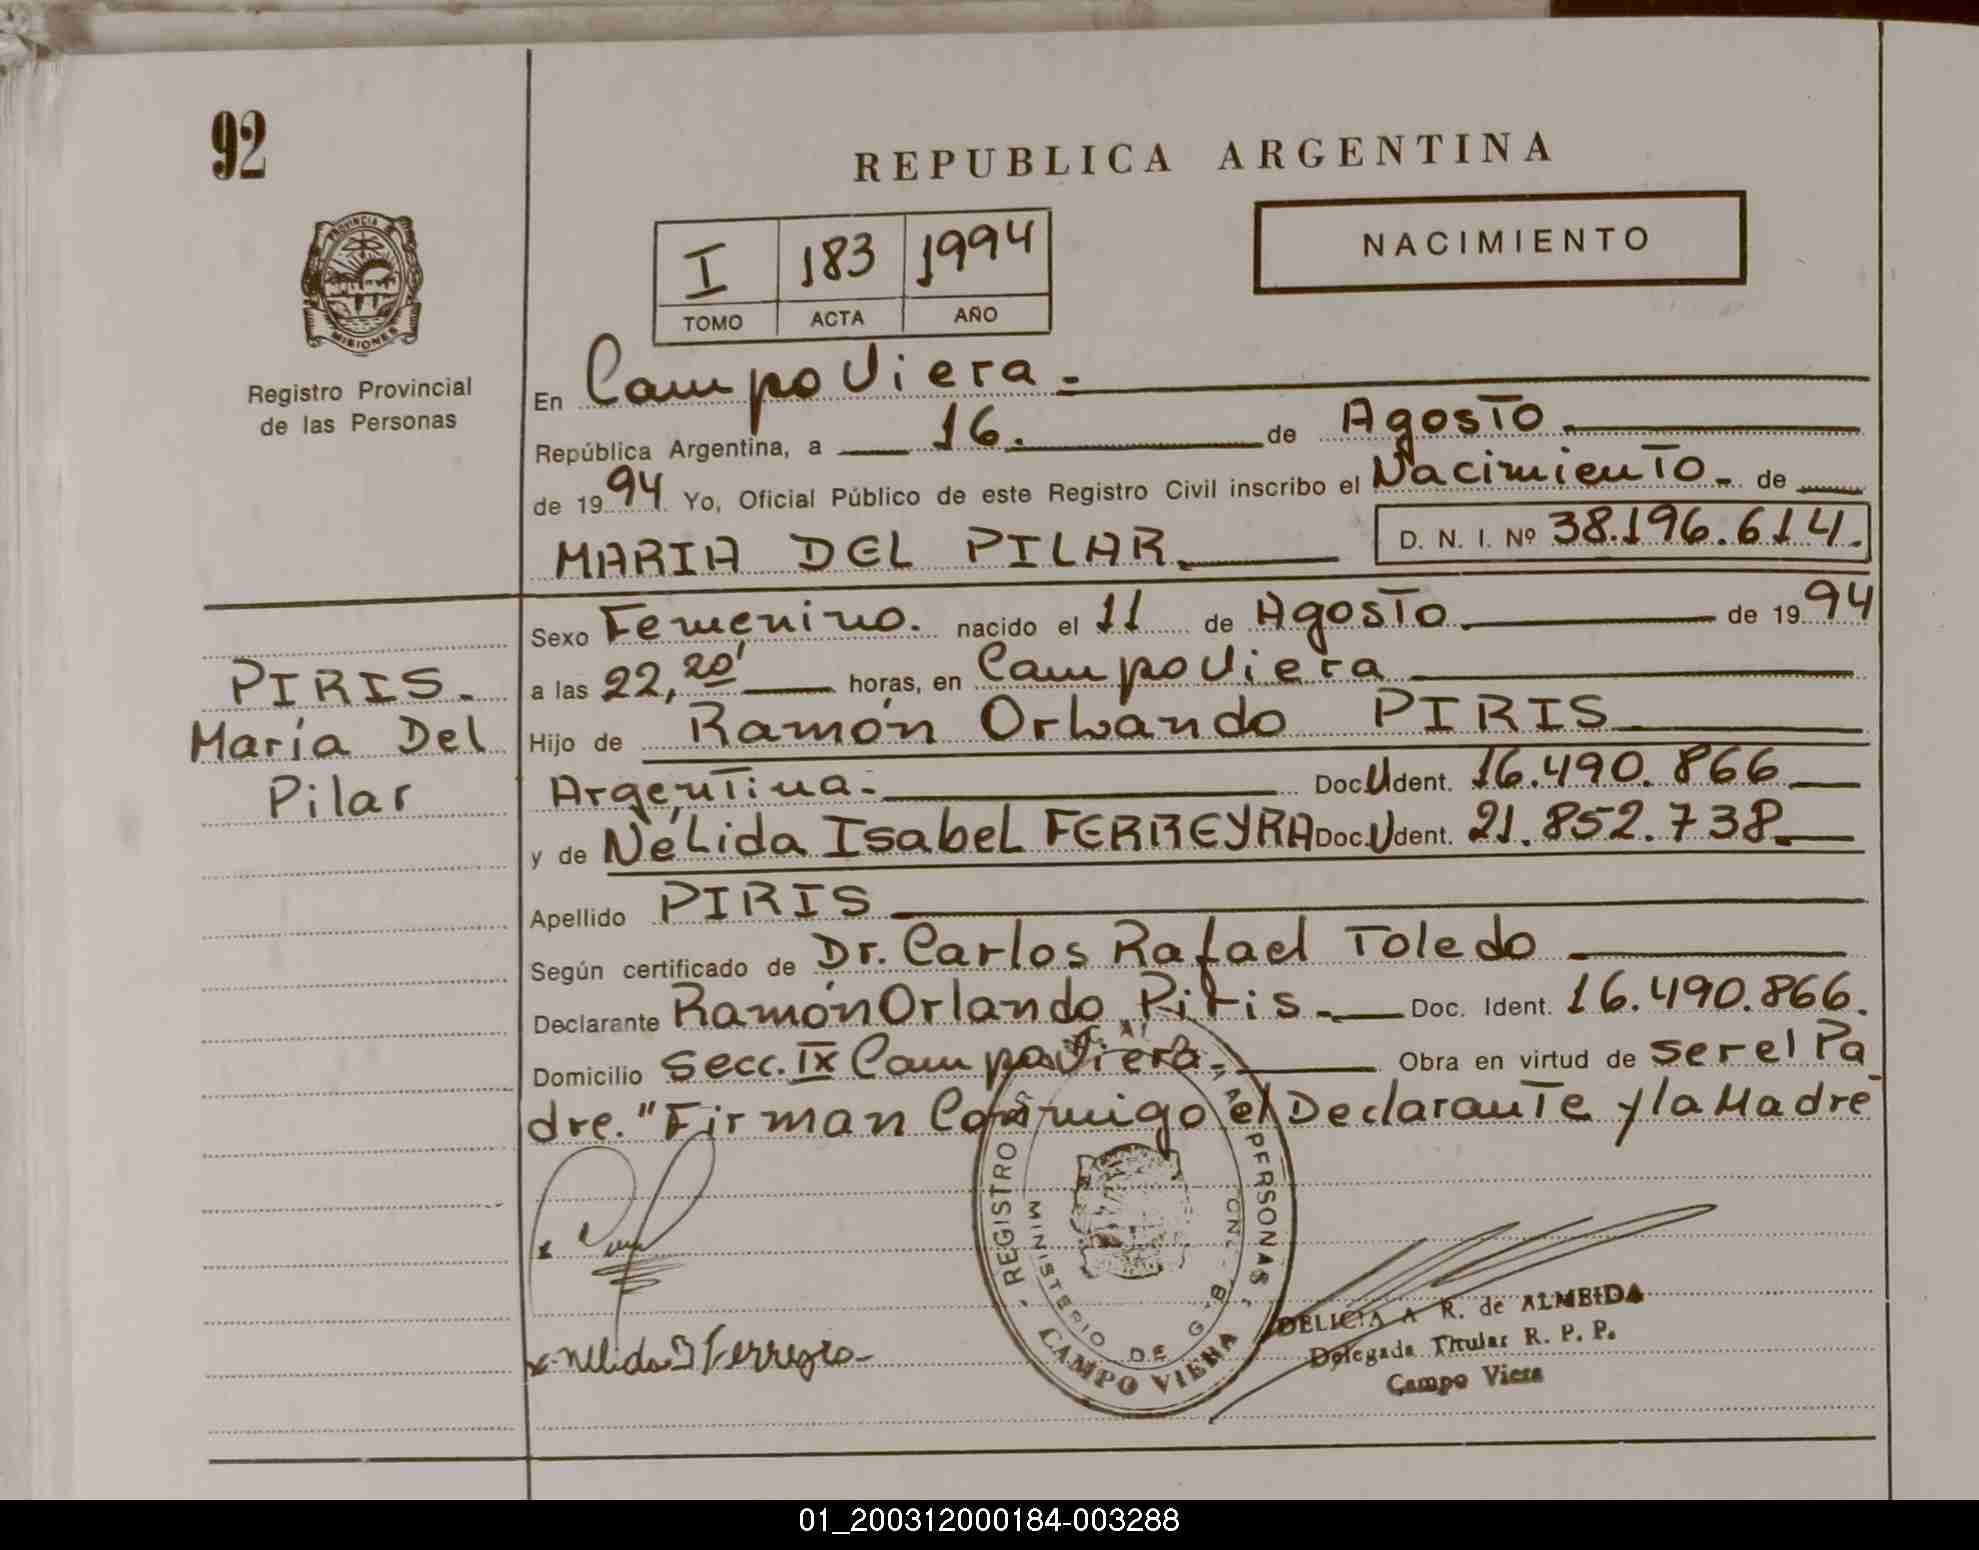 92
REPUBLICA ARGENTINA
PROVINCIA
MISIONES
Registro Provincial
de las Personas
I 183 1994
TOMO ACTA AÑO
NACIMIENTO
En Campo Viera -
República Argentina, a 16. de Agosto
de 1994 Yo, Oficial Público de este Registro Civil inscribo el Nacimiento - de
MARIA DEL PILAR.
D. N. I. Nº 38.196.614.
PIRIS.
María Del
Pilar
Sexo Femenino. nacido el 11 de Agosto de 1994
a las 22,20' horas, en Campo Viera
Hijo de Ramón Orlando PIRIS
Argentina - Doc. U Ident. 16.490.866
y de Nélida Isabel FERREYRA Doc. U Ident. 21.852.738
Apellido PIRIS
Según certificado de Dr. Carlos Rafael Toledo
Declarante Ramón Orlando Piris - Doc. Ident. 16.490.866.
Domicilio Secc. IX Campo Viera - Obra en virtud de ser el Pa
dre. "Firman Conmigo el Declarante y la Madre
REGISTRO PERSONAS
MINISTERIO DE
CAMPO VIERA
x Nelida I Ferreyra -
DELICIA A R. de ALMEIDA
Delegada Titular R. P. P.
Campo Viera
01_200312000184-003288